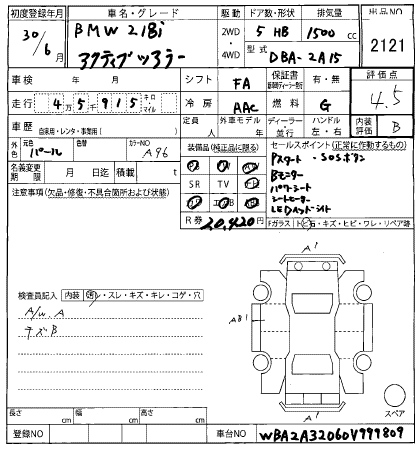 初度登録年月 車名・グレード 駆動 ドア数・形状 排気量 出品NO
30/6月 BMW 218i 2WD・4WD 5 HB 1500 cc 2121
アクティブツアラー 型式 DBA-2A15
車検 年 月 シフト FA 保証書 有・無 評価点
走行 4万5千915 キロ・マイル 冷房 AAC 燃料 G 4.5
車歴 自家用・レンタ・事業用( ) 定員 人 外車モデル 年 ディーラー・並行 ハンドル 左・右 内装評価 B
外色 元色 パール 色替 カラーNO A96
装備品(純正品に限る) セールスポイント(正常に作動するもの)
名義変更期限 月 日迄 積載 t
SR TV
Pスタート・SOSボタン
Bモニター
パワーシート
シートヒーター
LEDヘッドライト
注意事項(欠品・修復・不具合箇所および状態)
R券 20,420円
Fガラス ト 石・キズ・ヒビ・ワレ・リペア跡
検査員記入 内装 ・スレ・キズ・キレ・コゲ・穴
A/W.A
テズB
A1
AB1
A1
スペア
長さ cm 幅 cm 高さ cm
登録NO 車台NO WBA2A32060V999809